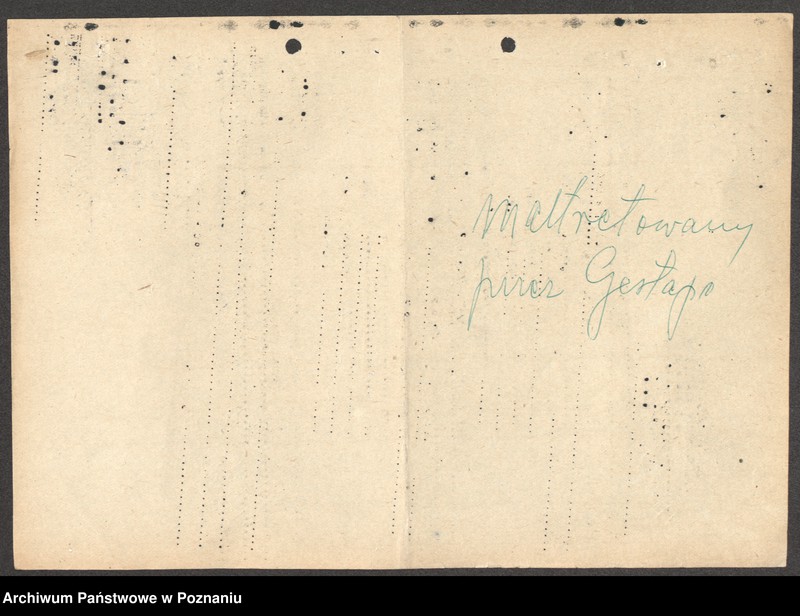 Maltretowany
przez Gestapo
Archiwum Państwowe w Poznaniu